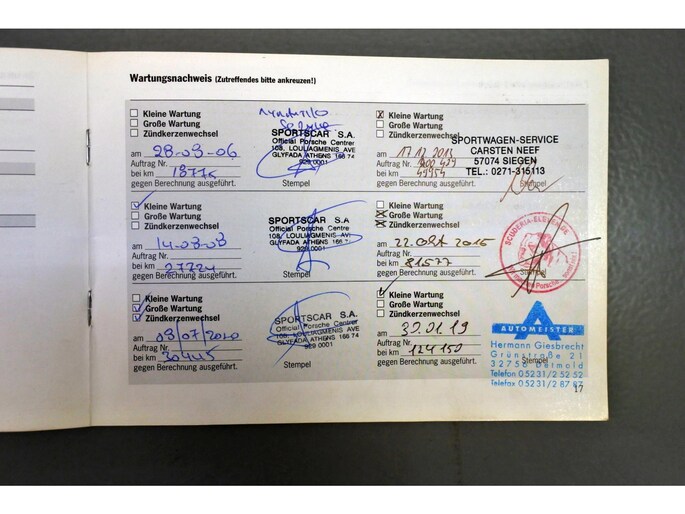 Wartungsnachweis (Zutreffendes bitte ankreuzen!)
Kleine Wartung
Große Wartung
Zündkerzenwechsel
am 28-03-06
Auftrag Nr.
bei km 18775
gegen Berechnung ausgeführt.
SPORTSCAR S.A.
Official Porsche Center
108, LOULIAGMENIS AVE
GLYFADA ATHENS 166 74
929 0001
Stempel
Kleine Wartung
Große Wartung
Zündkerzenwechsel
am 17.12.2013
Auftrag Nr.
bei km 49954
gegen Berechnung ausgeführt.
SPORTWAGEN-SERVICE
CARSTEN NEEF
57074 SIEGEN
TEL.: 0271-315113
Stempel
Kleine Wartung
Große Wartung
Zündkerzenwechsel
am 14-03-08
Auftrag Nr.
bei km 27224
gegen Berechnung ausgeführt.
SPORTSCAR S.A
Official Porsche Centre
108, LOULIAGMENIS AVE
GLYFADA ATHENS 166 74
929 0001
Stempel
Kleine Wartung
Große Wartung
Zündkerzenwechsel
am 22. Okt 2015
Auftrag Nr.
bei km 81577
gegen Berechnung ausgeführt.
Stempel
Kleine Wartung
Große Wartung
Zündkerzenwechsel
am 08/07/2010
Auftrag Nr.
bei km 30445
gegen Berechnung ausgeführt.
SPORTSCAR S.A.
Official Porsche Centre
108, LOULIAGMENIS AVE
GLYFADA ATHENS 166 74
929 0001
Stempel
Kleine Wartung
Große Wartung
Zündkerzenwechsel
am 30.01.19
Auftrag Nr.
bei km 124150
gegen Berechnung ausgeführt.
AUTOMEISTER
Hermann Giesbrecht
Grünstraße 21
32756 Detmold
Telefon 05231/2 52 52
Telefax 05231/2 87 87
Stempel
17